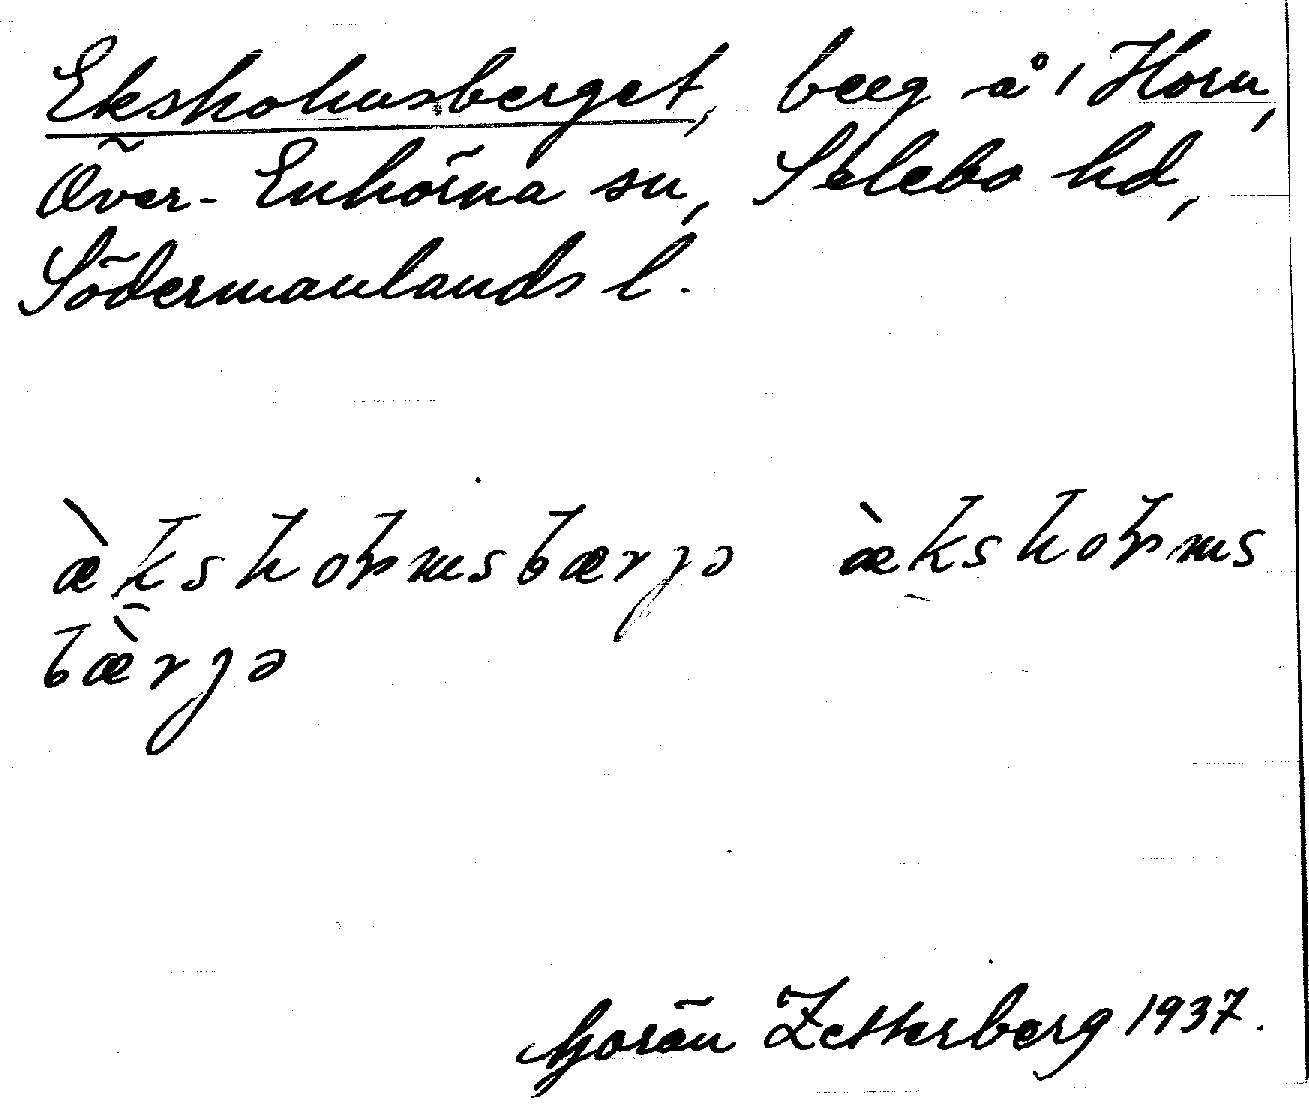 Eksholmsberget, berg å 1 Horn,
Över-Enhörna sn, Selebo hd,
Södermanlands l.
æ̀ksholmsbærjə æ̀ksholms
bæ̀rjə
Göran Zetterberg 1937.